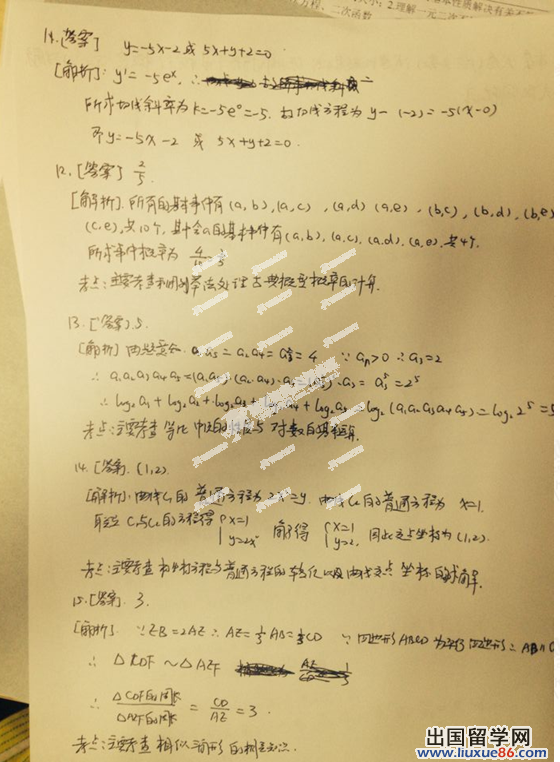 本性质解决有关不
大小;2.理解一元二次不
方程、二次函数
[答案] y=-5x-2或 5x+y+2=0.
[解析]: y'=-5eˣ,
所求切线斜率为 k=-5e⁰=-5. 切线方程为 y-(-2)=-5(x-0)
即 y=-5x-2 或 5x+y+2=0.
12. [答案] 2/5.
[解析]. 所有的基本事件有(a,b),(a,c),(a,d)(a,e),(b,c),(b,d),(b,e)
(c,e),共10个, 其中含a的基本事件有(a,b),(a,c),(a,d),(a,e),共4个.
所求事件概率为
考点:主要考查利用列举法处理古典概型概率的计算.
13. [答案] 5.
[解析] 由题意知 a₁a₅=a₂a₄=a₃²=4 ∵ aₙ>0 ∴ a₃=2
∴ a₁a₂a₃a₄a₅=(a₁a₅)·(a₂a₄)·a₃=(a₃²)²·a₃=a₃⁵=2⁵
∴ log₂a₁+log₂a₂+log₂a₃+log₂a₄+log₂a₅=log₂(a₁a₂a₃a₄a₅)=log₂2⁵=5
考点:主要考查等比中项的性质与对数的基本运算.
14. [答案]. (1,2).
[解析]. 曲线C₁的普通方程为2x²=y. 曲线C₂的普通方程为 x=1.
联立C₁与C₂的方程得 {x=1 y=2x² 解得 {x=1 y=2, 因此交点坐标为(1,2).
考点:主要考查 方程与普通方程的转化以及曲线交点坐标的求解.
15. [答案]. 3.
[解析]. ∵EB=2AE ∴AE=1/3AB=1/3CD ∵四边形ABCD为平行四边形∴AB
∴ △CDF∽△AEF
∴ △CDF的周长/△AEF的周长 = CD/AE =3.
考点:主要考查相似三角形的相关知识.
出国留学网
www.liuxue86.com